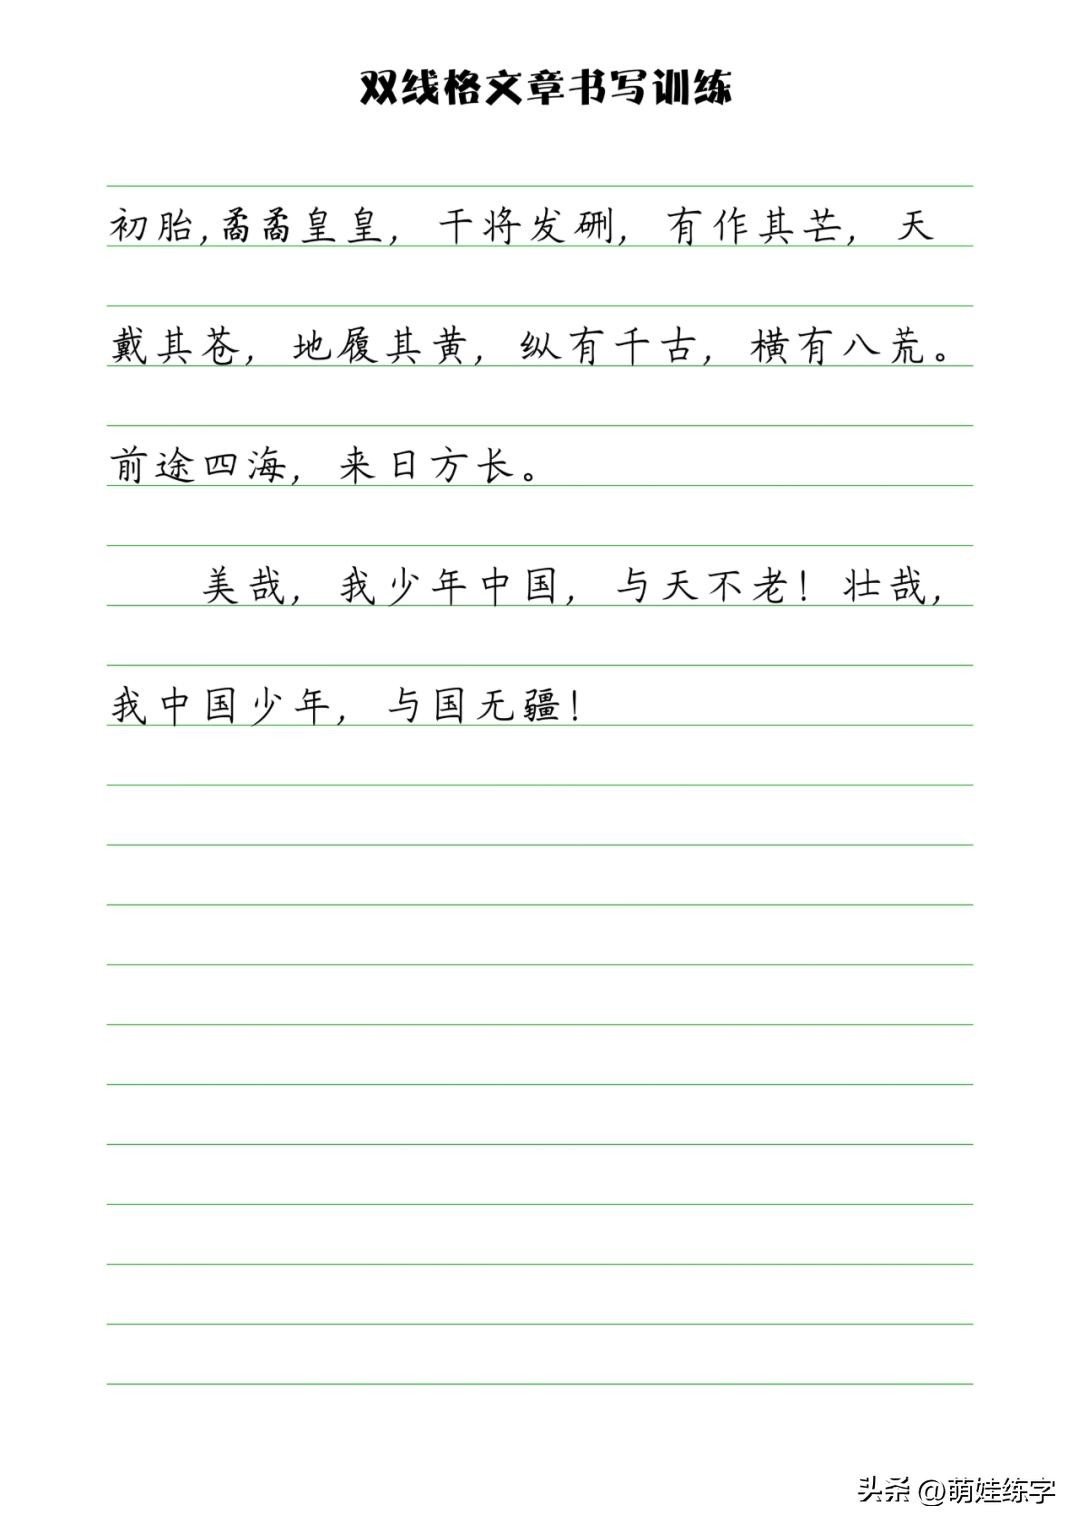 双线格文章书写训练
初胎,矞矞皇皇，干将发硎，有作其芒，天
戴其苍，地履其黄，纵有千古，横有八荒。
前途四海，来日方长。
美哉，我少年中国，与天不老！壮哉，
我中国少年，与国无疆！
头条 @萌娃练字